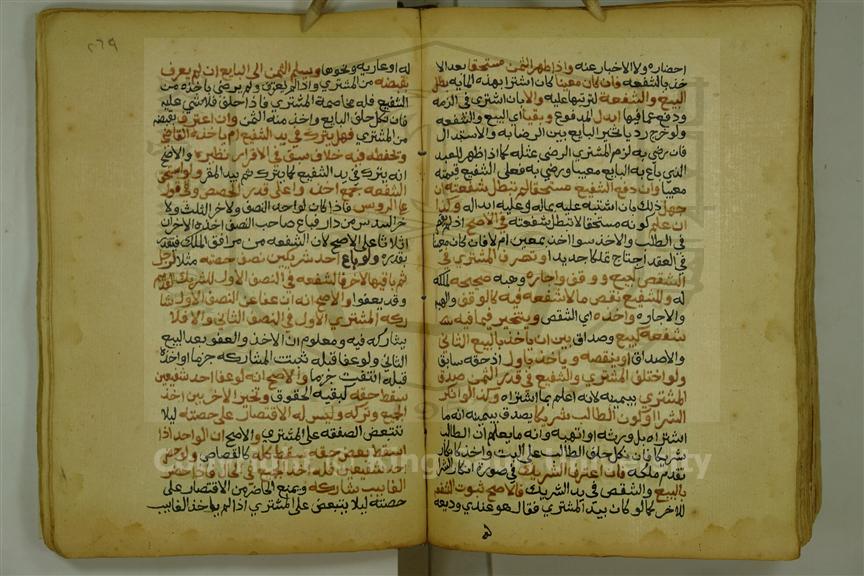 احضاره ولا الاخبار عنه واذا ظهر الثمن مستحقا بعد الا
خذ بالشفعه فان كان معينا كان اشترا بهذه المايه بطل
البيع والشفعة لترتبها عليه والا بان اشترى في الذمه
ودفع عما فيها ابدل المدفوع وبقيا اي البيع والشفعه
ولو خرج رديا تخير البايع بين الرضا به والاستبدال
فان رضي به لزم المشتري الرضى بمثله كما اذا ظهر العبد
الذي باع به البايع معيبا ورضي به فعلى الشفيع قيمته
معيبا وان دفع الشفيع مستحقا لم تبطل شفعته ان
جهل ذلك بان اشتبه عليه بماله وعليه ابداله وكذا
ان علم كونه مستحقا لا تبطل شفعته في الاصح اذ لم يقصر
في الطلب والاخذ سوا اخذ بمعين ام لا فان كان معينا
في العقد احتاج تملكا جديدا وتصرف المشتري في
الشقص كبيع ووقف واجاره وهبه صحيحه لملكه
له وللشفيع نقص ما لا شفعه فيه كالوقف والهبه
والاجاره واخذه اي الشقص ويتخير فيما فيه شـ
شفعة كبيع وصداق بين ان ياخذ بالبيع الثاني
والاصداق او ينقضه وياخذ بالاول اذ حقه سابق
ولو اختلف المشتري والشفيع في قدر الثمن صدق
المشتري بيمينه لانه اعلم بما اشتراه وكذا لو انكر
الشرا او كون الطالب شريكا يصدق بيمينه انه ما
اشتراه بل ورثه او اتهبه وانه ما يعلم ان الطالب
شريك فان نكل حلف الطالب على البت واخذ كما كان
تقدم ملكه فان اعترف الشريك في صورة انكار الشرا
بالبيع والشقص في يد الشريك فالاصح ثبوت الشفعه
للاخر كما لو كان بيد المشتري فقال هو عندي وديعه
له
٢٦٩
له او عاريه ونحوها ويسلم الثمن الى البايع ان لم يعترف
بقبضه من المشتري واذا لم يعترف ولم يرض باخذه من
الشفيع فله مخاصمة المشتري فاذا حلف فلا شي عليه
فان نكل حلف البايع واخذ منه الثمن وان اعترف بقبضه
من المشتري فهل يترك في يد الشفيع ام ياخذه القاضي
ويحفظه فيه خلاف سبق في الاقرار نظيره والاصح
انه يترك في يد الشفيع كما يترك ثم بيد المقر ولو استحق
الشفعه جمع اخذوا على قدر الحصص وفي قول
على الروس فاذا كان لواحد النصف ولاخر الثلث ولا
خر السدس من دار فباع صاحب النصف اخذه الاخران
اثلاثا على الاصح لان الشفعه من مرافق الملك فتقدر
بقدره ولو باع احد شريكين نصف حصته مثلا لرجل
ثم باقيها لاخر فالشفعه في النصف الاول للشريك القديم
وقد يعفوا والاصح انه ان عفا عن النصف الاول شا
ركه المشتري الاول في النصف الثاني والا فلا
يشاركه فيه ومعلوم ان الاخذ والعفو بعد البيع
الثاني ولو عفا قبله ثبتت المشاركه جزما او اخذه
قبله انتفت جزما والاصح انه لو عفا احد شفيعين
سقط حقه كبقيه الحقوق وتخير الاخر بين اخذ
الجميع وتركه وليس له الاقتصار على حصته ليلا
تتبعض الصفقه على المشتري والاصح ان الواحد اذا
اسقط بعض حقه سقط كله كالقصاص ولو حضر
احد شفيعين فله اخذ الجميع في الحال فاذا حضر
الغايب شاركه ويمنع الحاضر من الاقتصار على
حصته ليلا يتبعض على المشتري اذا لم ياخذ الغايب